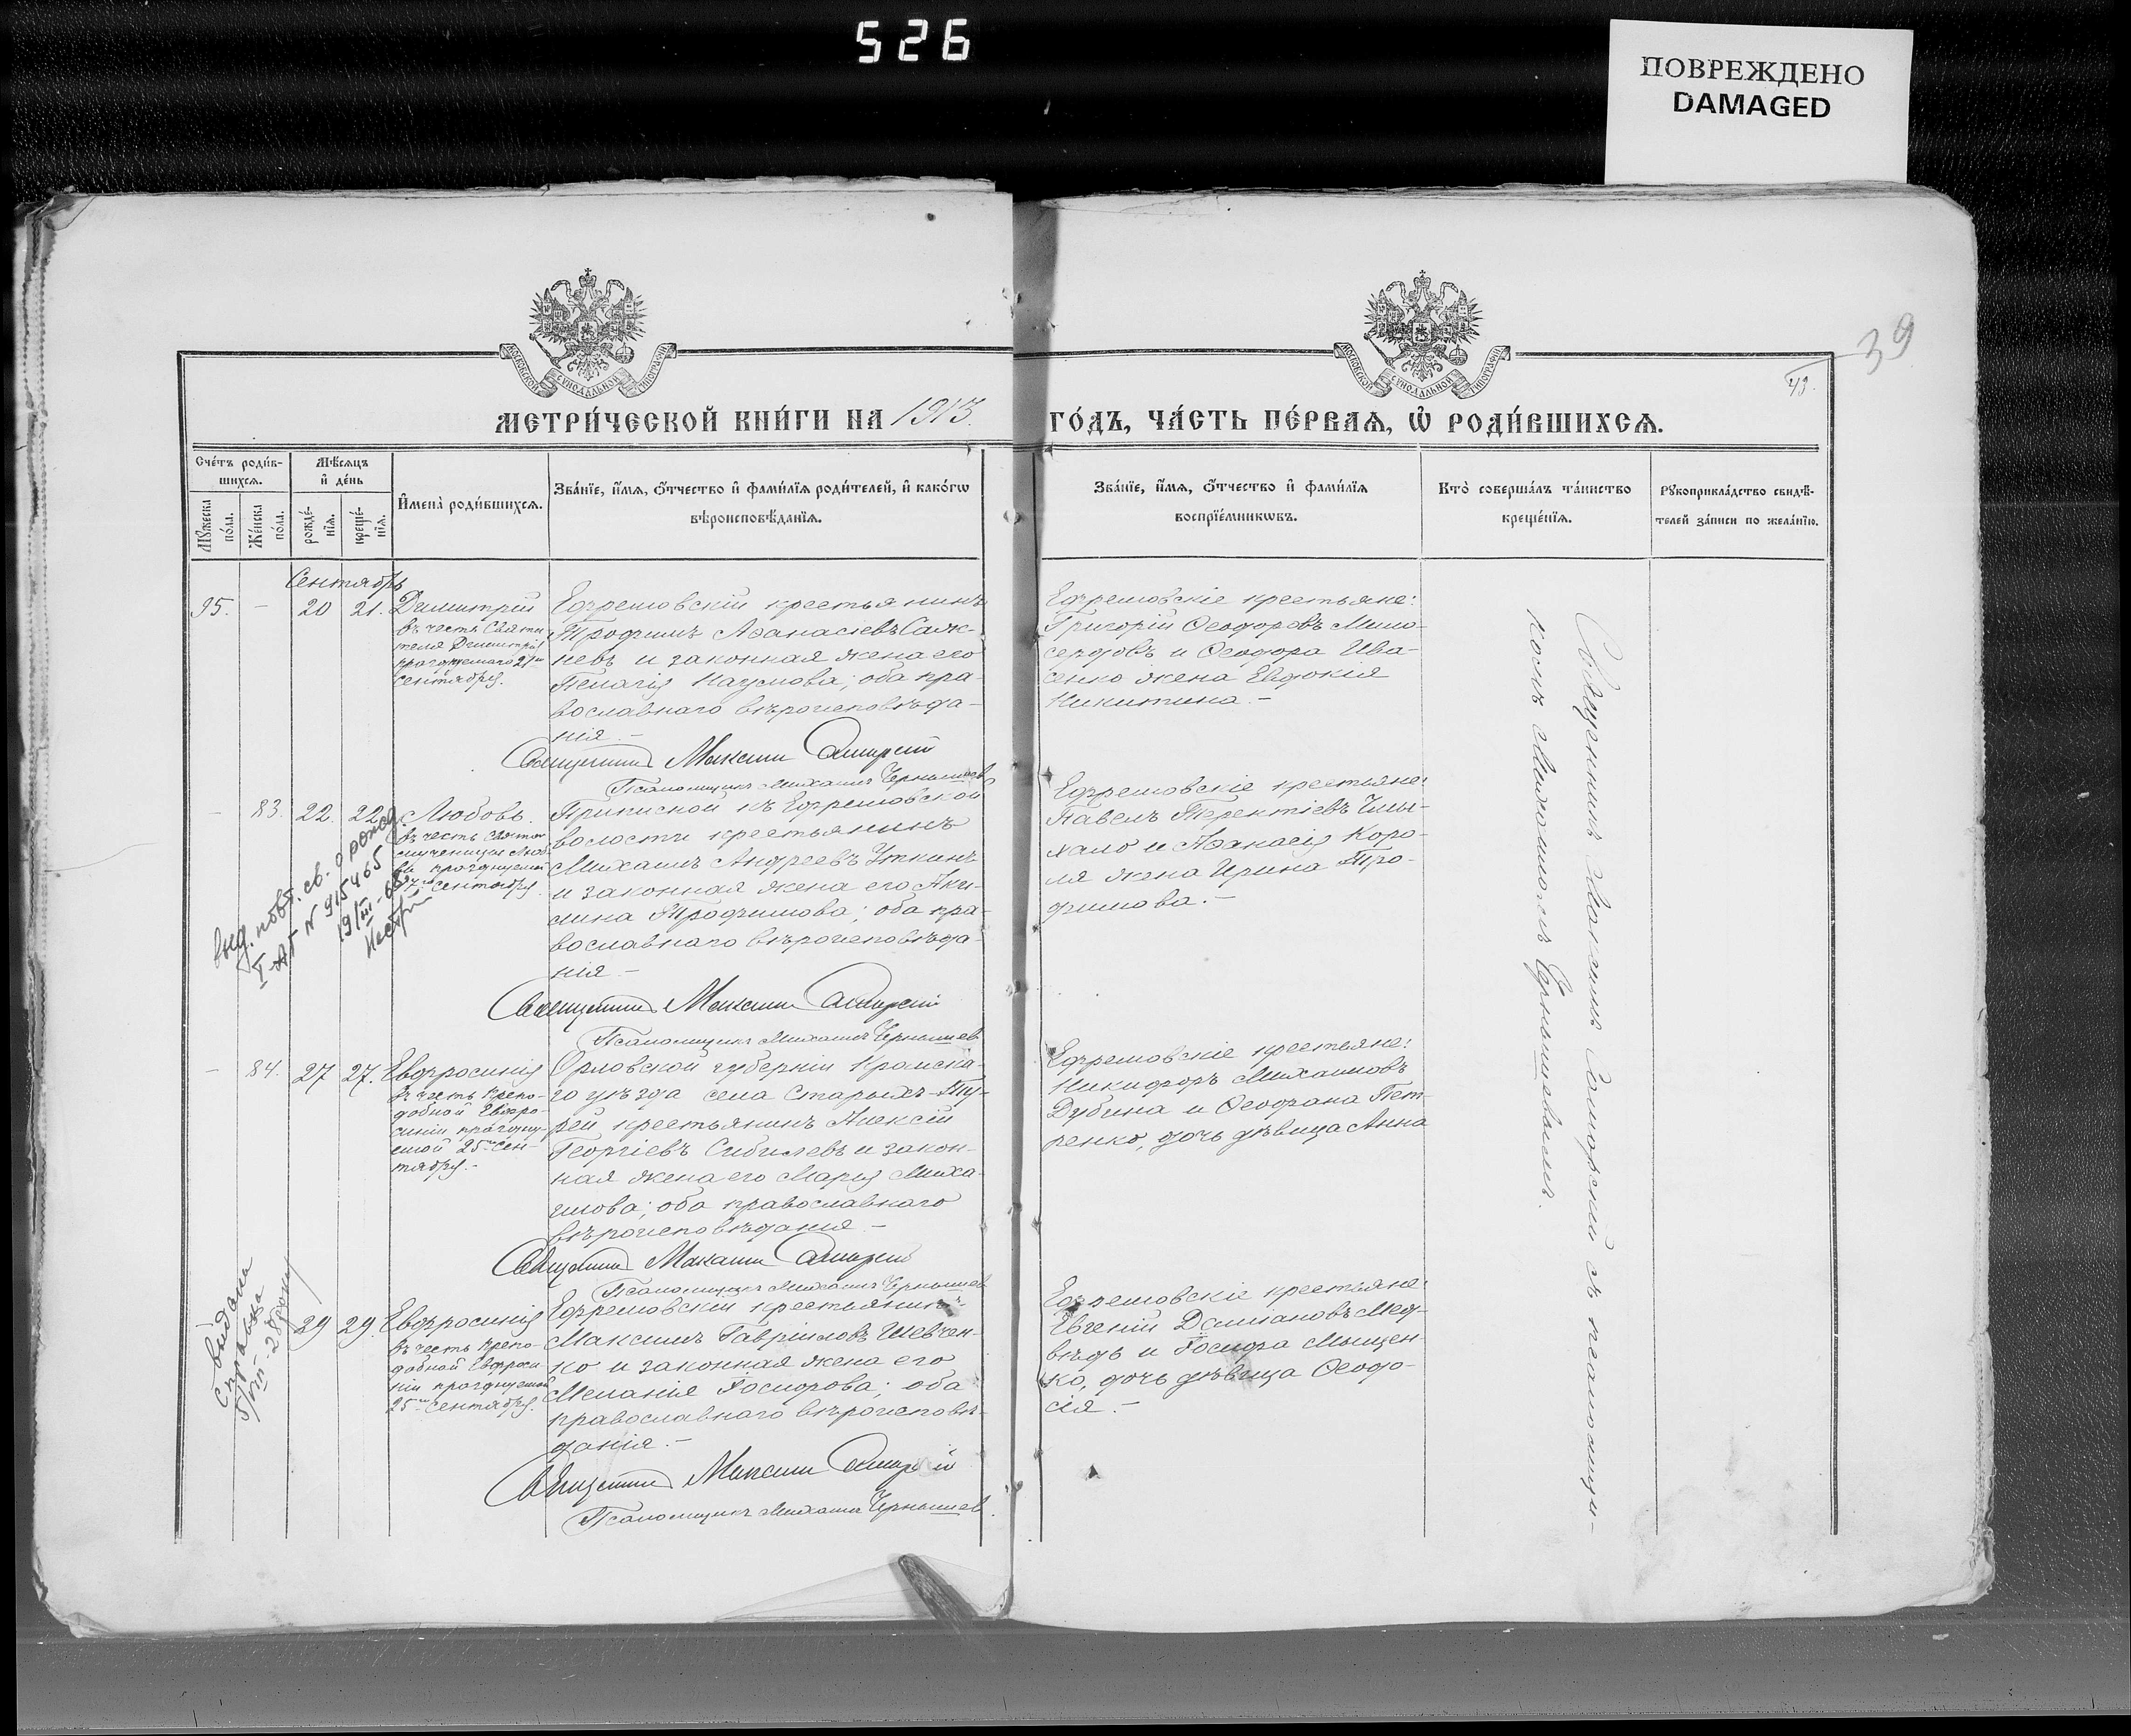 526
ПОВРЕЖДЕНО
DAMAGED
39
43.
МОСКОВСКОЙ СѴНОДАЛЬНОЙ ТИПОГРАФІИ
МОСКОВСКОЙ СѴНОДАЛЬНОЙ ТИПОГРАФІИ
МЕТРИ́ЧЕСКОЙ КНИ́ГИ НА 1913.
ГО́ДЪ, ЧА́СТЬ ПЕ́РВАѦ, Ѡ҆ РОДИ́ВШИХСѦ.
Сче́тъ роди́в-
шихсѧ.
Мꙋ́жеска
по́ла.
Же́нска
по́ла.
Мѣ́сѧцъ
и҆ де́нь
рожде́-
нїѧ.
креще́-
нїѧ.
И҆мена̀ роди́вшихсѧ.
Зва́нїе, и҆́мѧ, ѻ҆́тчество и҆ фами́лїѧ роди́телей, и҆ како́гѡ
вѣроисповѣ́данїѧ.
Зва́нїе, и҆́мѧ, ѻ҆́тчество и҆ фами́лїѧ
воспрїе́мникѡвъ.
Кто̀ соверша́лъ та́инство
креще́нїѧ.
Рꙋкоприкла́дство свидѣ́-
телей за́писи по жела́нїю.
Сентябрь
95. — 20 21. Димитрій
въ честь Святи-
теля Димитрія
празднуемаго 21го
сентября.
Ефремовскій крестьянинъ
Трофимъ Аѳанасіевъ Саж-
невъ и законная жена его
Пелагія Наумова; оба пра-
вославнаго вѣроисповѣда-
нія.—
Священникъ Максимъ Самарскій
Псаломщикъ Михаилъ Чернышев
Ефремовскіе крестьяне:
Григорій Ѳеодоровъ Мило-
сердовъ и Ѳеодора Ива-
сенко жена Евдокія
Никитина.—
— 83. 22. 22. Любовь.
въ честь святой
мученицы Люб-
ви празднуемой
17го сентября.
Приписной къ Ефремовской
волости крестьянинъ
Михаилъ Андреевъ Уткинъ
и законная жена его Аки-
лина Трофимова; оба пра-
вославнаго вѣроисповѣда-
нія—
Священникъ Максимъ Самарскій
Псаломщикъ Михаилъ Чернышев
Ефремовскіе крестьяне:
Павелъ Терентіевъ
и Аѳанасія Коро-
ля жена Ирина Тро-
фимова.—
выд. повт. св. о рожд
I-АП № 915465
19/III-68
— 84. 27 27. Евфросинія
въ честь препо-
добной Евфро-
синіи праздну-
емой 25го сен-
тября.—
Орловской губерніи Кромска-
го уѣзда села Старыхъ-Ту-
рей крестьянинъ Алексій
Георгіевъ Сибилевъ и закон-
ная жена его Марія Миха-
илова; оба православнаго
вѣроисповѣданія—
Священникъ Максимъ Самарскій
Псаломщикъ Михаилъ Чернышев
Ефремовскіе крестьяне:
Никифоръ Михаиловъ
Дубина и Ѳеофана Пет-
ренко, дочь дѣвица Анна
29 29. Евфросинія
въ честь препо-
добной Евфроси
ніи празднуемой
25го сентября.
Ефремовскій крестьянинъ
Максимъ Гавріиловъ Шевчен-
ко и законная жена его
Меланія Госифова; оба
православнаго вѣроисповѣ-
данія.—
Священникъ Максимъ Самарскій
Псаломщикъ Михаилъ Чернышев
Ефремовскіе крестьяне:
Евгеній Даміановъ Мед-
вѣдь и Іосифа Мищен-
ко, дочь дѣвица Ѳеодо-
сія.—
Выдана
справка
Священникъ Максимъ Самарскій съ псаломщи-
комъ Михаиломъ Чернышевымъ.